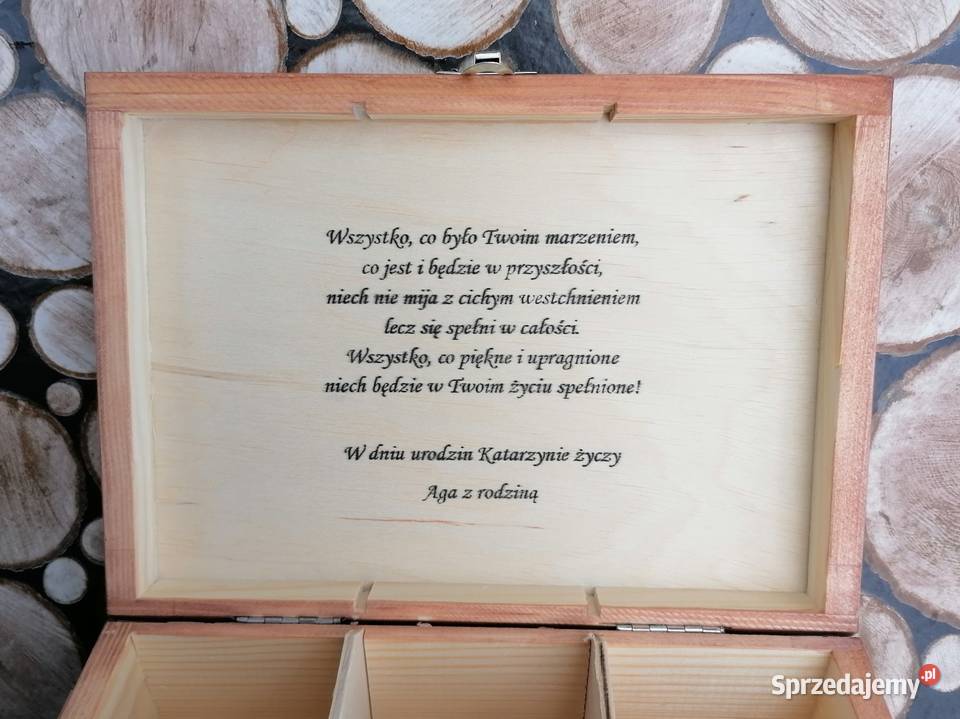 Wszystko, co było Twoim marzeniem,
co jest i będzie w przyszłości,
niech nie mija z cichym westchnieniem
lecz się spełni w całości.
Wszystko, co piękne i upragnione
niech będzie w Twoim życiu spełnione!
W dniu urodzin Katarzynie życzy
Aga z rodziną
Sprzedajemy.pl